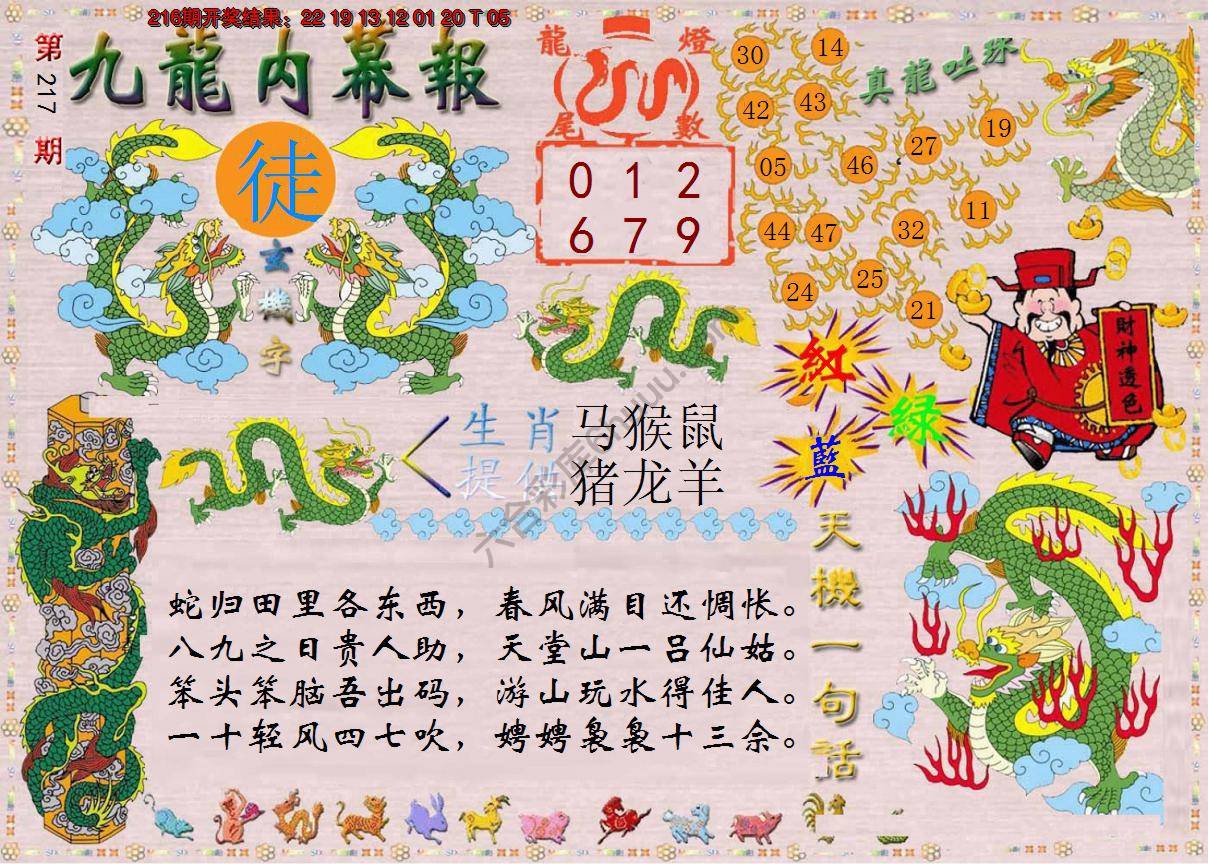 216期开奖结果：22 19 13 12 01 20 T 05
第217期
九龍内幕報
徒
玄機字
龍燈尾數
0 1 2
6 7 9
真龍吐珠
30 14
42 43
05 46 27 19
44 47 32 11
24 25 21
財神透色
紅
綠
藍
生肖 马猴鼠
提供 猪龙羊
天機一句話
蛇归田里各东西，春风满目还惆怅。
八九之日贵人助，天堂山一吕仙姑。
笨头笨脑吾出码，游山玩水得佳人。
一十轻风四七吹，娉娉袅袅十三余。